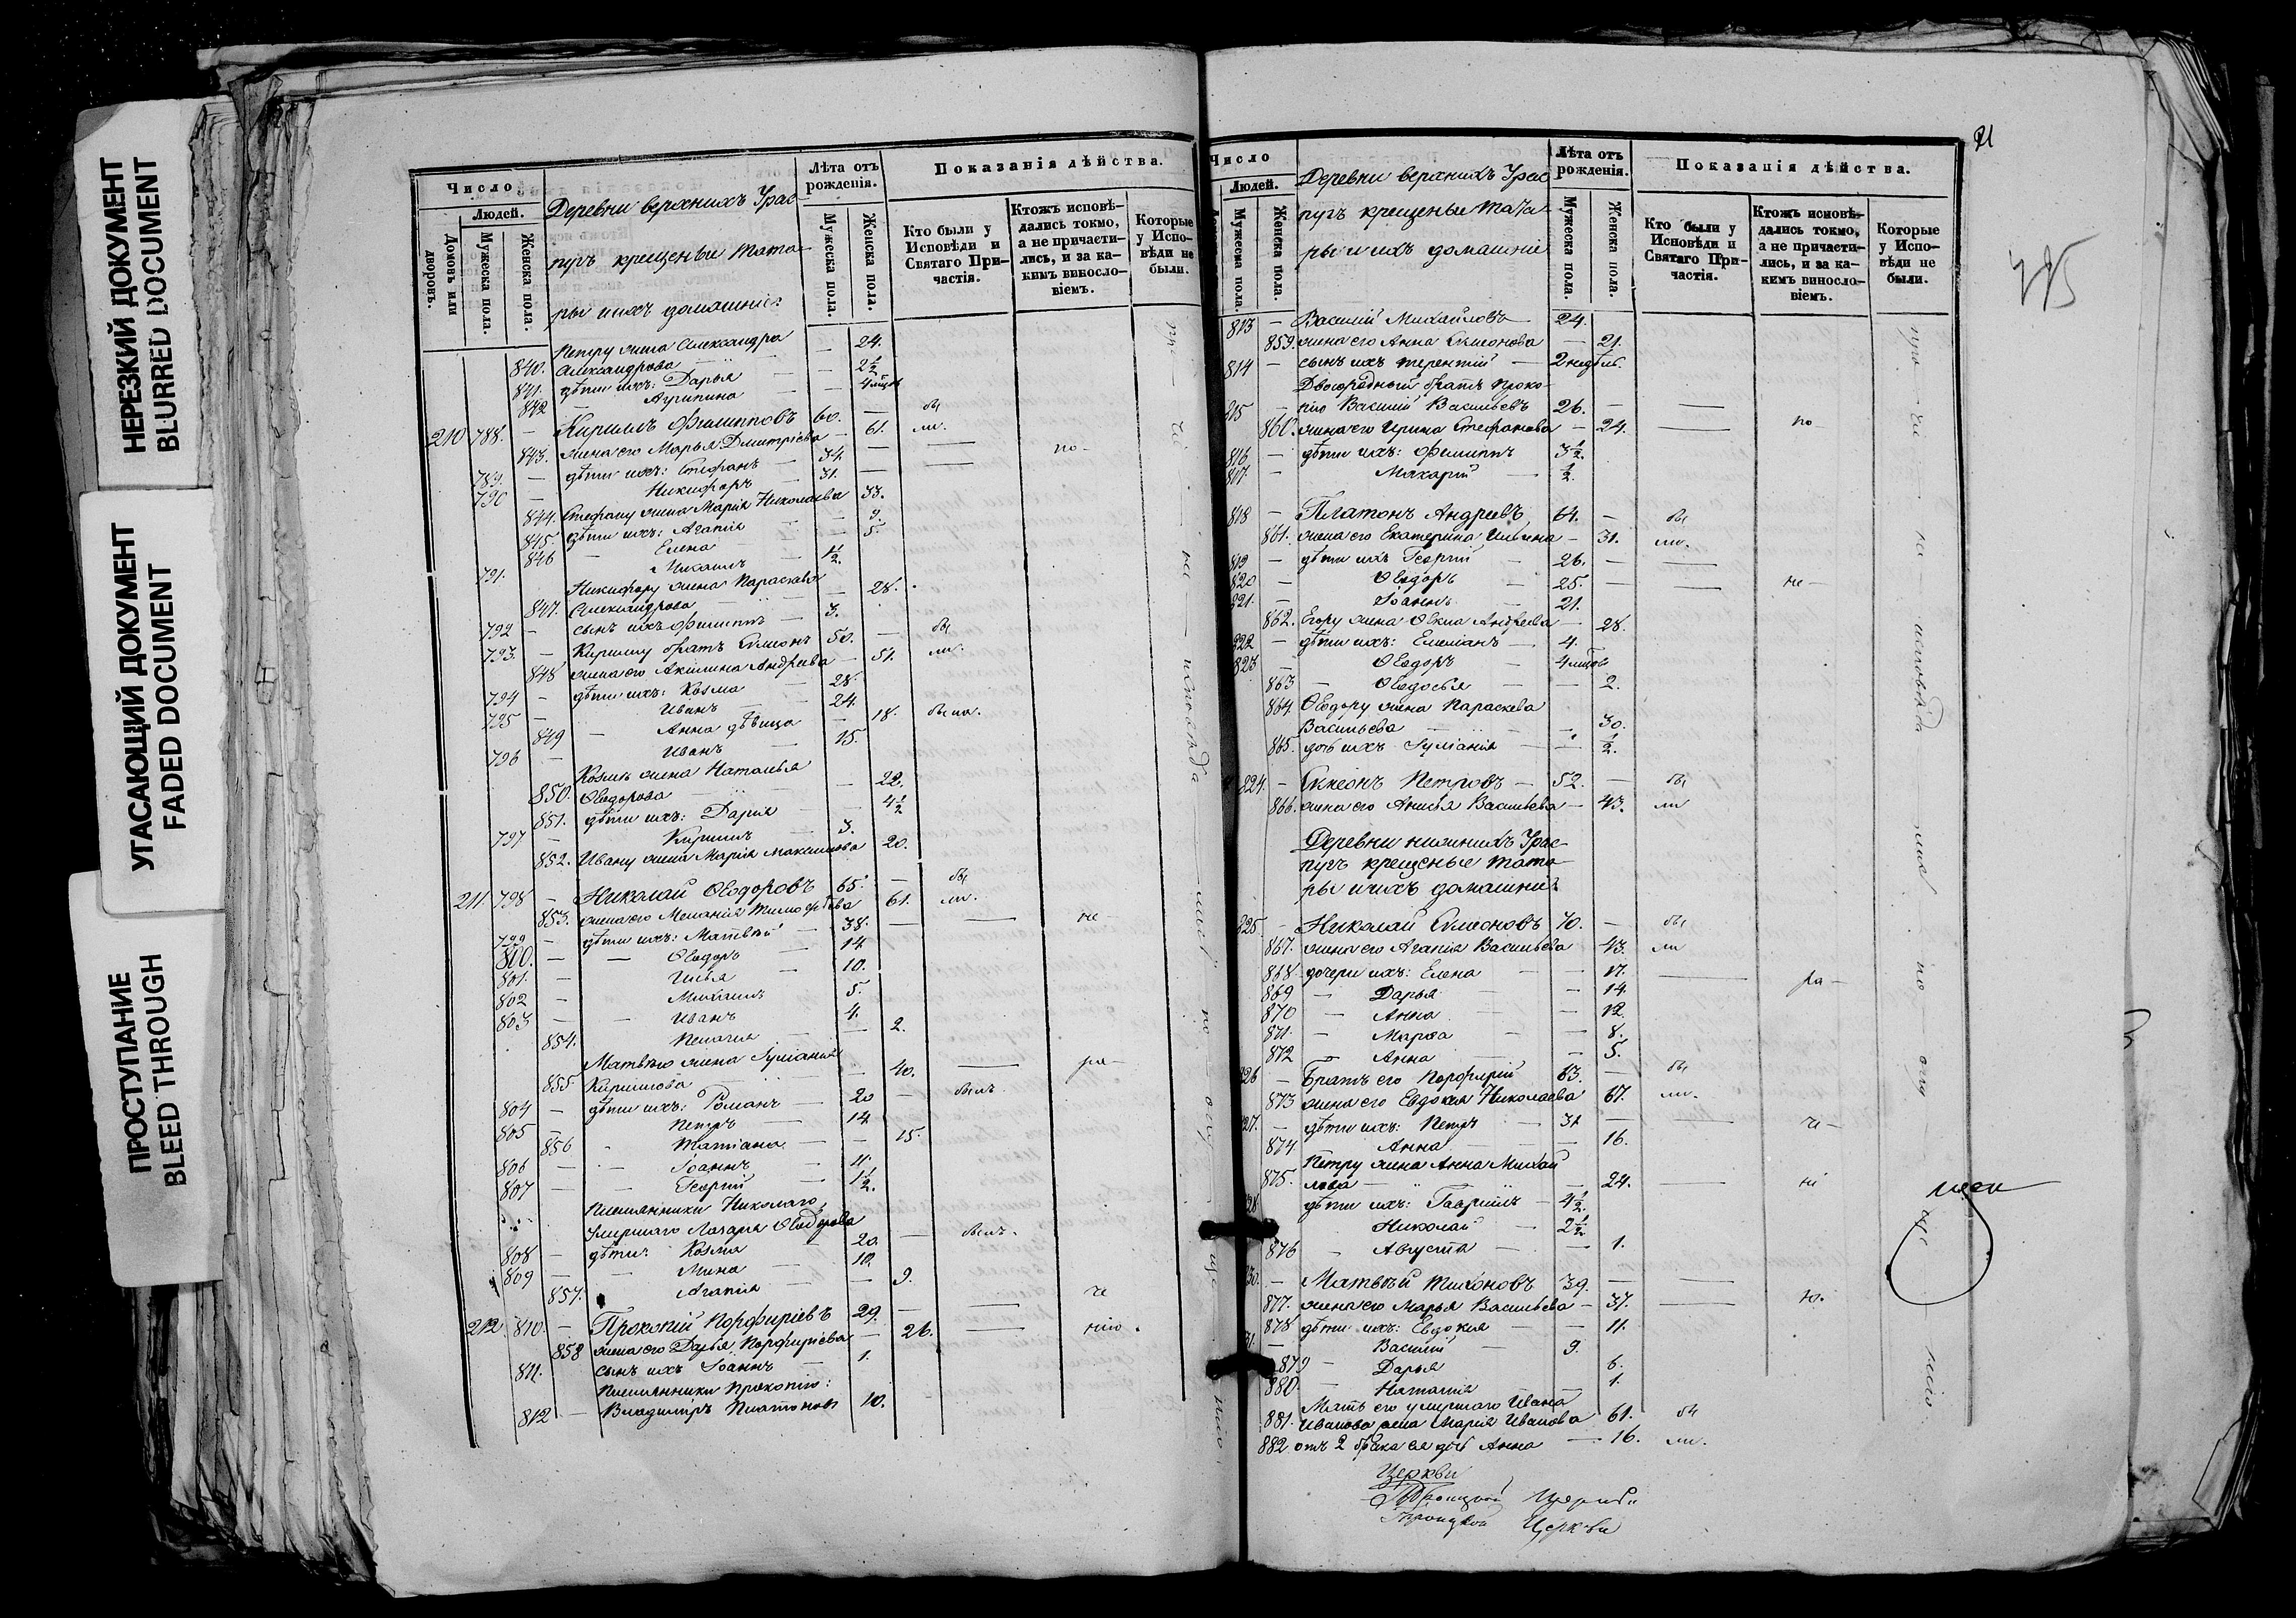 НЕРЕЗКИЙ ДОКУМЕНТ
BLURRED DOCUMENT
УГАСАЮЩИЙ ДОКУМЕНТ
FADED DOCUMENT
ПРОСТУПАНИЕ
BLEED THROUGH
Число
Людей.
Домовъ или дворовъ.
Мужеска пола.
Женска пола.
Деревни верхнихъ Урас-
пугъ крещеные тата-
ры и ихъ домашніе:
Лѣта отъ рожденія.
Мужеска пола.
Женска пола.
Показанія дѣйства.
Кто были у Исповѣди и Святаго При-частія.
Ктожъ исповѣ-дались токмо, а не причасти-лись, и за ка-кимъ винословіемъ.
Которые у Испо-вѣди не были.
Петру жена Александра
840. Александрова — 24.
841. дѣти ихъ: Дарья — 2 1/2
842 — Агрипина — 4 мцов
210 788. — Кириллъ Филипповъ 60. — бы
843. жена его Марья Дмитріева — 61. ли.
789. — дѣти ихъ: Стефанъ — 34. — по-
790 — Никифоръ — 31. —
844. Стефану жена Марія Николаева 33.
845. дѣти ихъ: Агапія — 9.
846 — Елена — 5.
791. Михаилъ 1 1/2.
Никифору жена Параскева
847. Александрова — 28.
792 — сынъ ихъ Филиппъ — 3.
793. — Кириллу братъ Симеонъ 50. — бы
848 жена его Акилина Андреева — 51. ли.
794 — дѣти ихъ: Козма — 28.
795 — Иванъ — 24.
849 — Анна дѣвица — 18. была.
796 — Иванъ — 15.
Козмѣ жена Наталья
850. Ѳеодорова — 22.
851. дѣти ихъ: Дарія — 4 1/2
797 — Кириллъ — 3.
852. Ивану жена Марія Максимова 20.
211 798 — Николай Ѳеодоровъ 65. — бы
853. жена его Меланія Тимофеева 61. ли.
799 — дѣти ихъ: Матвѣй — 38. — не-
800. — Ѳеодоръ — 14
801. — Илья — 10.
802 — Михаилъ 5.
803 — Иванъ 4.
854. Пелагія — 2.
Матвѣю жена Іуліанія
855 Кириллова — 40. — ра-
804 — дѣти ихъ: Романъ — 20 — былъ
805 — Петръ — 14
856 Татіана — 15.
806 — Іоаннъ — 4.
807 — Георгій — 1 1/2.
Племянники Николаю,
умершаго Лазаря Ѳеодорова
808 — дѣти: Козма 20. — былъ.
809 — Мина — 10.
857. Агапія — 9.
212 810. — Прокопій Порфирьевъ 29. — че
858 жена его Дарья Порфирьева — 26. — нію.
811. сынъ ихъ Іоаннъ — 1.
Племянники Прокопію:
812 — Владиміръ Платоновъ 10.
21
Число
Людей.
Мужеска пола.
Женска пола.
Деревни верхнихъ Урас
пугъ крещеные тата-
ры и ихъ домашніе
Лѣта отъ рожденія.
Мужеска пола.
Женска пола.
Показанія дѣйства.
Кто были у Исповѣди и Святаго При-частія.
Ктожъ исповѣ-дались токмо, а не причасти-лись, и за ка-кимъ винословіемъ.
Которые у Испо-вѣди не были.
813 — Василій Михайловъ 24.
859. жена его Анна Симеонова — 21.
814 — сынъ ихъ Терентій — 2 недѣль.
Двоюродный братъ Проко-
815 — пію Василій Васильевъ 26. —
860. жена его Ирина Стефанова — 24. — по-
816 — дѣти ихъ: Филиппъ 3 1/2.
817. Макарій 1/2.
818 — Платонъ Андреевъ 64. — бы
861. жена его Екатерина Ильина — 31. ли.
819 — дѣти ихъ Георгій — 26. —
820 — Ѳеодоръ — 25. — не-
821. — Іоаннъ — 21.
862. Егору жена Ѳекла Андреева — 28.
822 — дѣти ихъ: Емеліанъ — 4.
823 — Ѳеодоръ — 4 мцов
863 — Ѳеодосья — 2.
864. Ѳеодору жена Параскева
Васильева — 30.
865. дочь ихъ Іуліанія — 1/2.
824. — Симеонъ Петровъ — 52. — бы
866. жена его Анисья Васильева — 43. ли
Деревни нижнихъ Урас-
пугъ крещеные тата-
ры и ихъ домашніе
825. — Николай Симеоновъ 70. — бы
867. жена его Агапія Васильева 43. ли
868 дочери ихъ: Елена — 17. — ра-
869 — Дарья — 14.
870 — Анна — 12.
871. — Марѳа — 8.
872 — Анна — 5.
826 — Братъ его Порфирій 63. — бы
873 жена его Евдокія Николаева 67. ли.
827. — дѣти ихъ: Петръ — 31 — че-
874. Анна — 16.
Петру жена Анна Михай
875. лова — 24. — ні
828 дѣти ихъ: Гавріилъ — 4 1/2.
Николай — 2 1/2
876 — Августа — 1.
830. — Матвѣй Тихоновъ 39. —
877. жена его Марья Васильева — 37. — ю.
878 дѣти ихъ: Евдокія — 11.
31. — Василій — 9.
879 — Дарья 6.
880. — Наталія 1.
Мать его умершаго Ивана
881. Иванова жена Марія Иванова 61. бы
882 отъ 2 брака ея дочь Анна — 16. ли.
Церкви
Троицкой Церкви
Троицкой Церкви